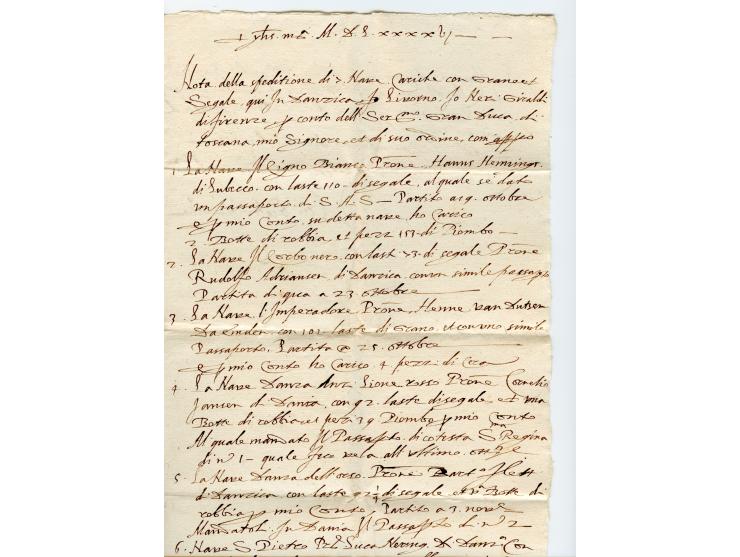 yhs. mª. M. D. L. xxxx vj
Nota della speditione di 7 Nave Cariche con Grano et
Segale, qui In Danzica p Livorno. Jo Neri Giraldi
di firenze p conto dell Sermo. Gran Duca di
Toscana, mio Signore et di suo ordine, com appo
1. La Nave Il Cigno Bianco Prone. Hanns Hemings
di Lubecco. con laste 110 - di segale, al quale se dato
un passaporto di S. A. S - Partito a 19. ottobre
e p mio Conto su detta nave ho Carico
2 Botte di robbia et pezzi 153 di Piombo -
2. La Nave Il Corbo nero. con last 73 di segale Prone
Rudolfo Adriansen di Danzica con un simile passapo
Partita di qua a 23 ottobre
3 La Nave l'Imperadore Prone, Henne van
Da Emden. con 102 laste di Grano. et con uno simile
Passaporto. Partita a 25. ottobre
e p mio Conto ho Carico 4 pezzi di Cera
4. La Nave Danza Lione rosso Prone Cornelio
Jansen di Danza, con 92 laste di segale et una
Botte di robbia et pezi 39 Piombo p mio Conto
Al quale mandato Il Passapto. di cotesta Sma Regina
di no 1 - quale fece vela all ultimo
5. La Nave Danza dell'orso. Prone Bart
di Danzica con laste 92 ½ di segale et Botte di
robbia p mio Conto. Partito a 3 novre
Mandatoli. In Dania Il Passapto di no 2
6. Nave S. Pietro Luca Nering. di Danza con